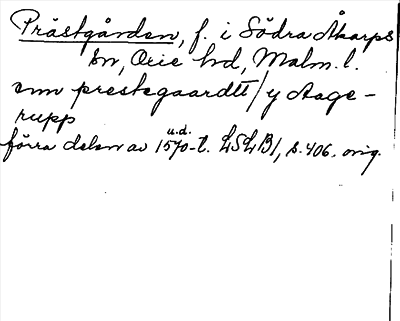 Prästgården, f. i Södra Åkarps
sn, Oxie hd, Malm. l.
enn prestegaardtt / y Aage-
rupp
u.d.
förra delen av 1570-t. LSLB1, s. 406. orig.